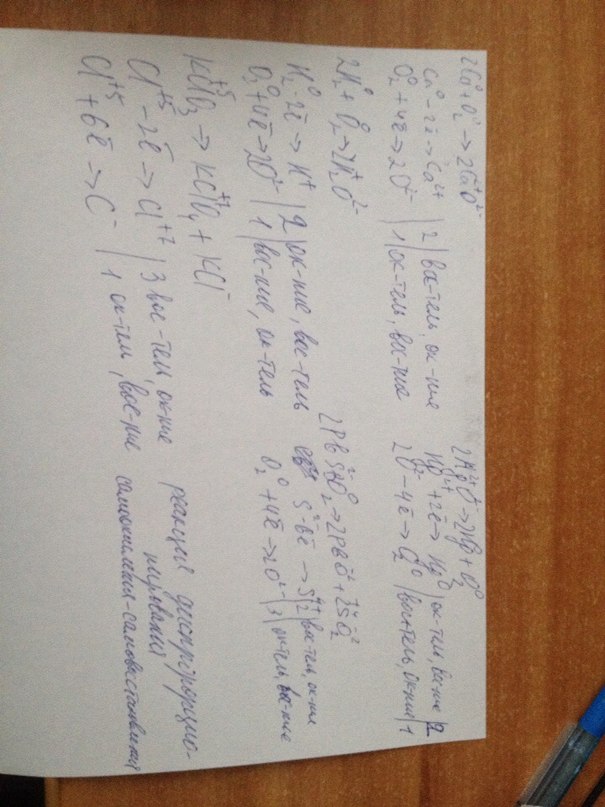 2Ca⁰ + O₂⁰ → 2Ca²⁺O²⁻
Ca⁰ - 2ē → Ca²⁺ | 2 | вос-тель, ок-ние
O₂⁰ + 4ē → 2O²⁻ | 1 | ок-тель, вос-ние
2H₂⁰ + O₂⁰ → 2H₂⁺O²⁻
H₂⁰ - 2ē → H⁺ | 2 | ок-ние, вос-тель
O₂⁰ + 4ē → 2O²⁻ | 1 | вос-ние, ок-тель
KCl⁺⁵O₃ → KCl⁺⁷O₄ + KCl⁻
Cl⁺⁵ - 2ē → Cl⁺⁷ | 3 вос-тель, ок-ние
Cl⁺⁵ + 6ē → Cl⁻ | 1 ок-тель, вос-ние
2Hg²⁺O²⁻ → 2Hg⁰ + O₂⁰
Hg²⁺ + 2ē → Hg⁰ | ок-тель, вос-ние | 2
2O²⁻ - 4ē → O₂⁰ | вос-тель, ок-ние | 1
2PbS²⁻ + O₂⁰ → 2PbO²⁻ + 2S⁺⁴O₂²⁻
S²⁻ - 6ē → S⁺⁴ | 2 | вос-тель, ок-ние
O₂⁰ + 4ē → 2O²⁻ | 3 | ок-тель, вос-ние
реакция диспропорцио-
нирования
самоокисления-самовосстановления